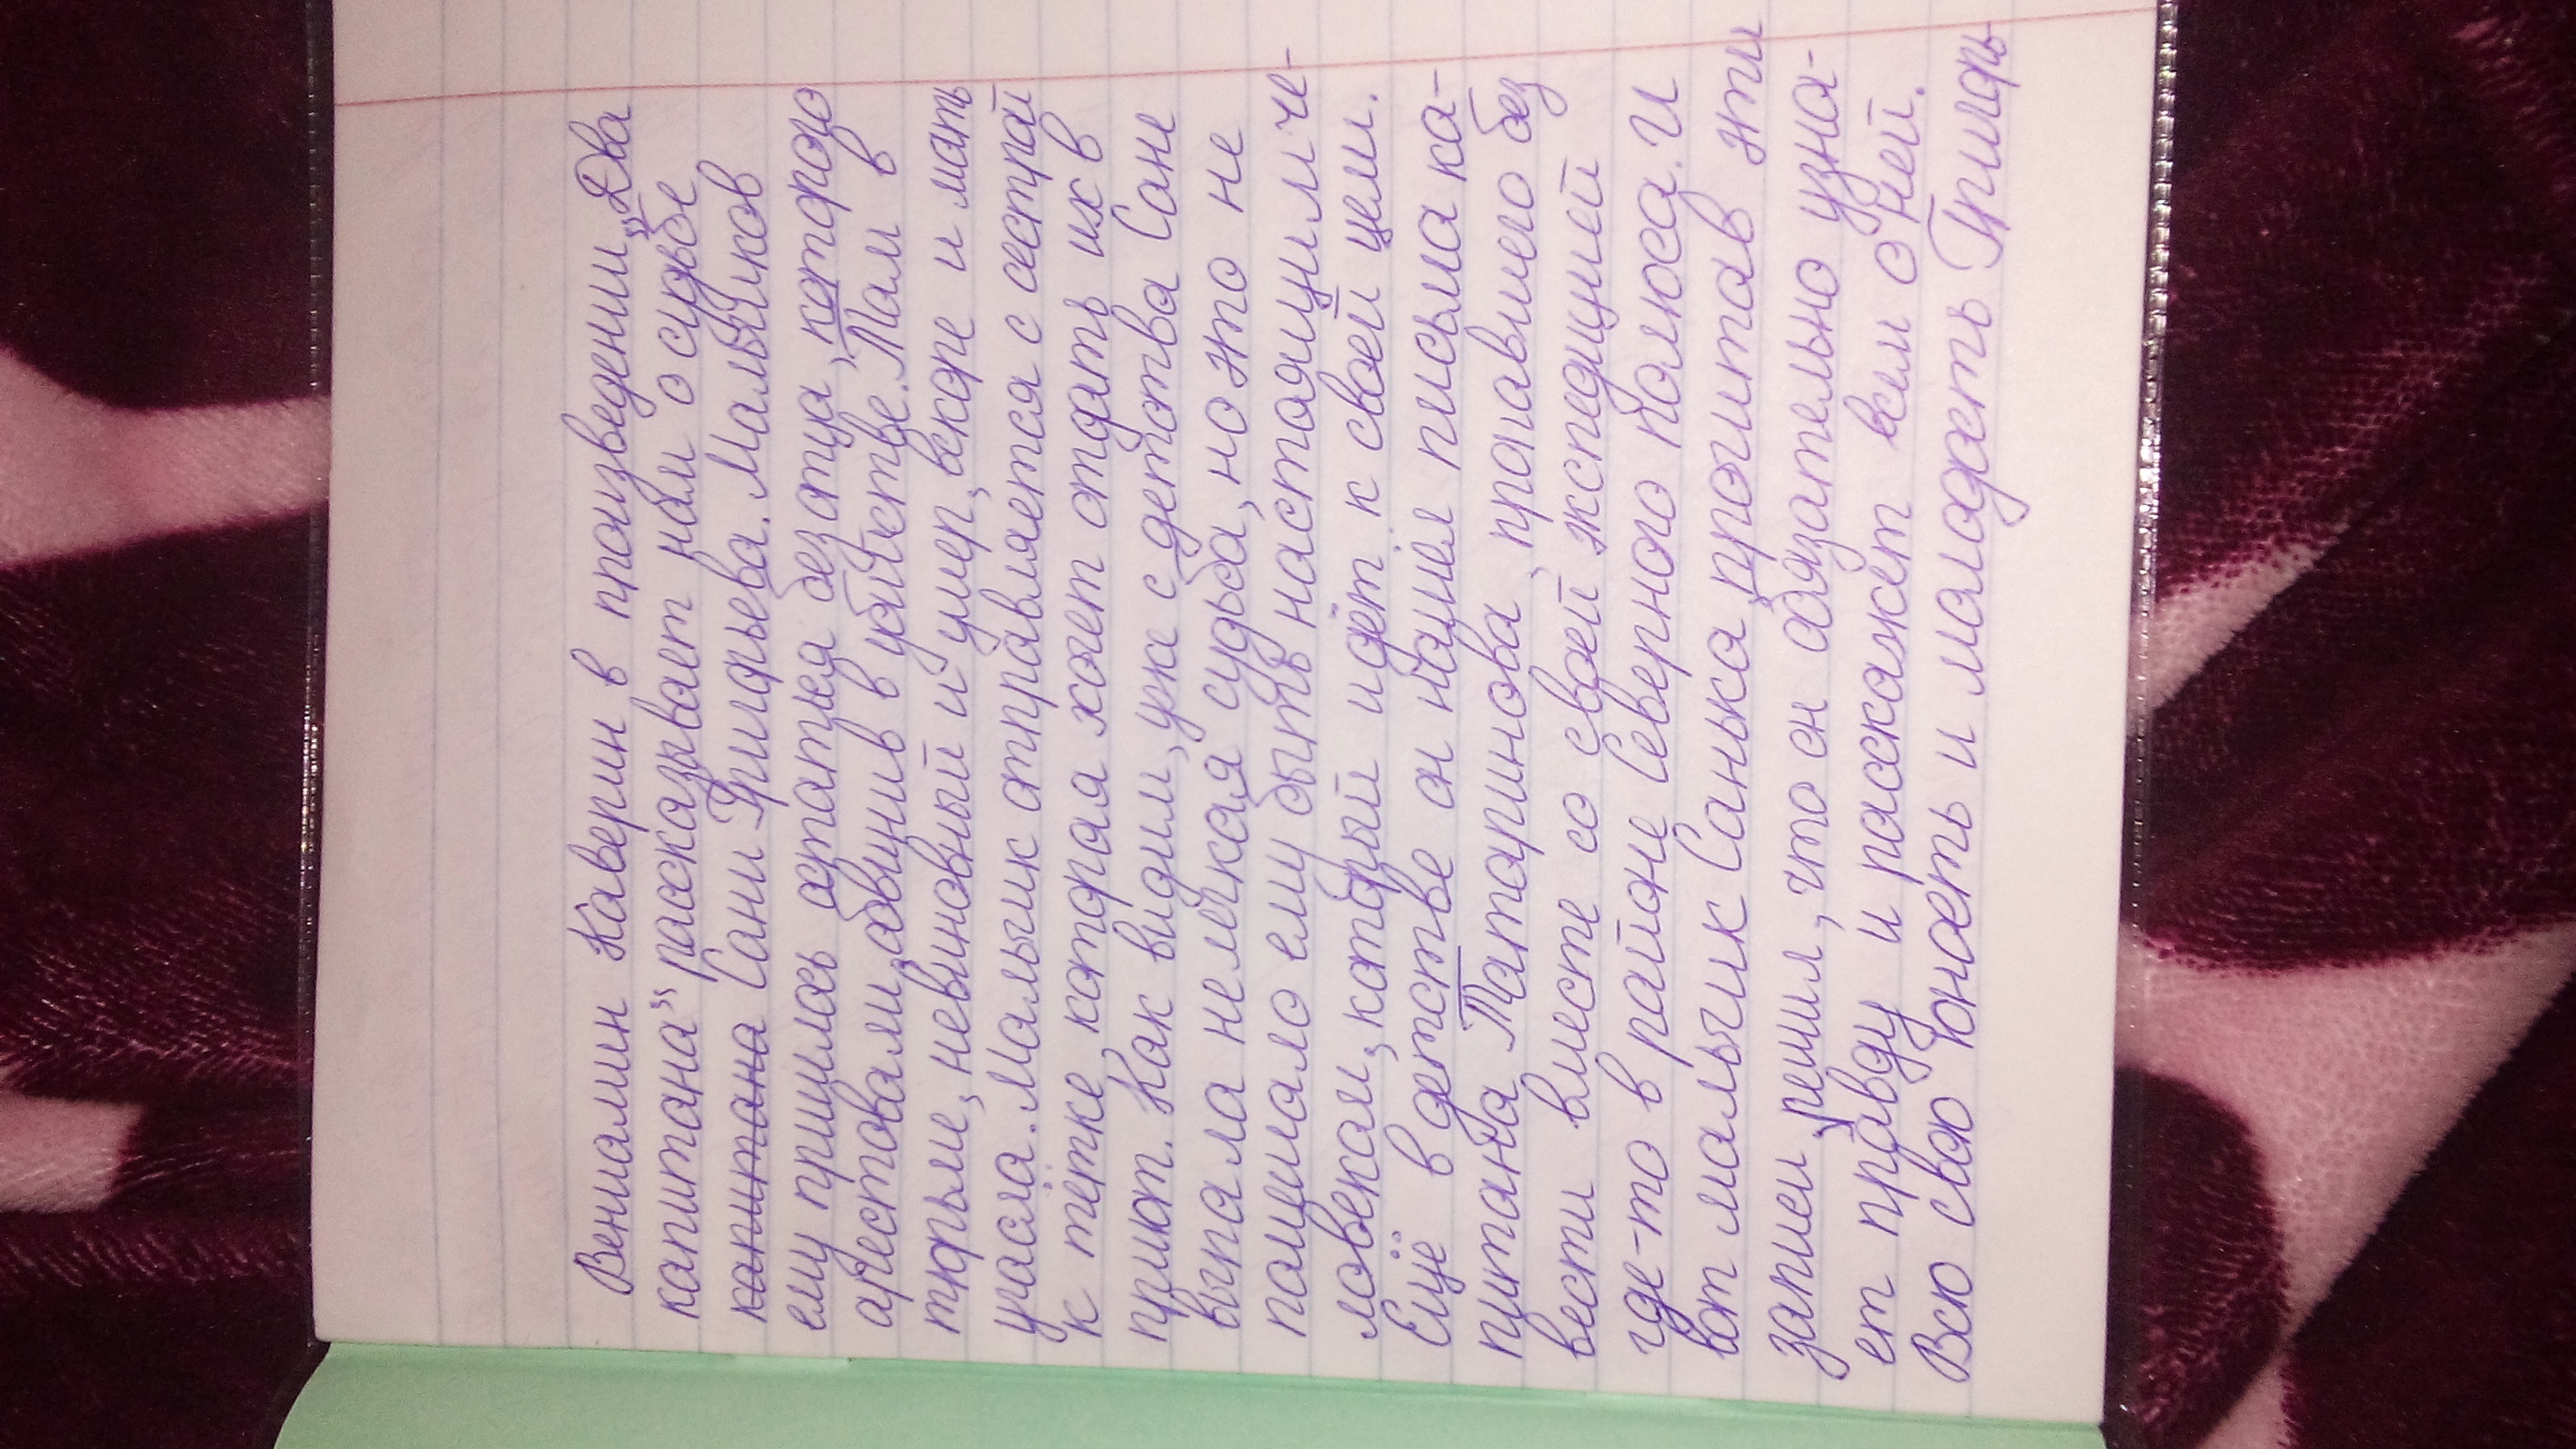 Вениамин Каверин в произведении „Два
капитана" рассказывает нам о судьбе
капитана Сани Григорьева. Мальчиков
ему пришлось остаться без отца, которого
арестовали, обвинив в убийстве. Там в
тюрьме, невиновный и умер, вскоре и мать
угасла. Мальчик отправляется с сестрой
к тётке, которая хочет отдать их в
приют. Как видим, уже с детства Сане
выпала нелёгкая судьба, но это не
помешало ему быть настоящим че-
ловеком, который идёт к своей цели.
Ещё в детстве он нашёл письма ка-
питана Татаринова, пропавшего без
вести вместе со своей экспедицией
где-то в районе Северного полюса. И
вот мальчик Санька прочитав эти
записи, решил, что он обязательно узна-
ет правду и расскажет всем о ней.
Всю свою юность и молодость Григорь